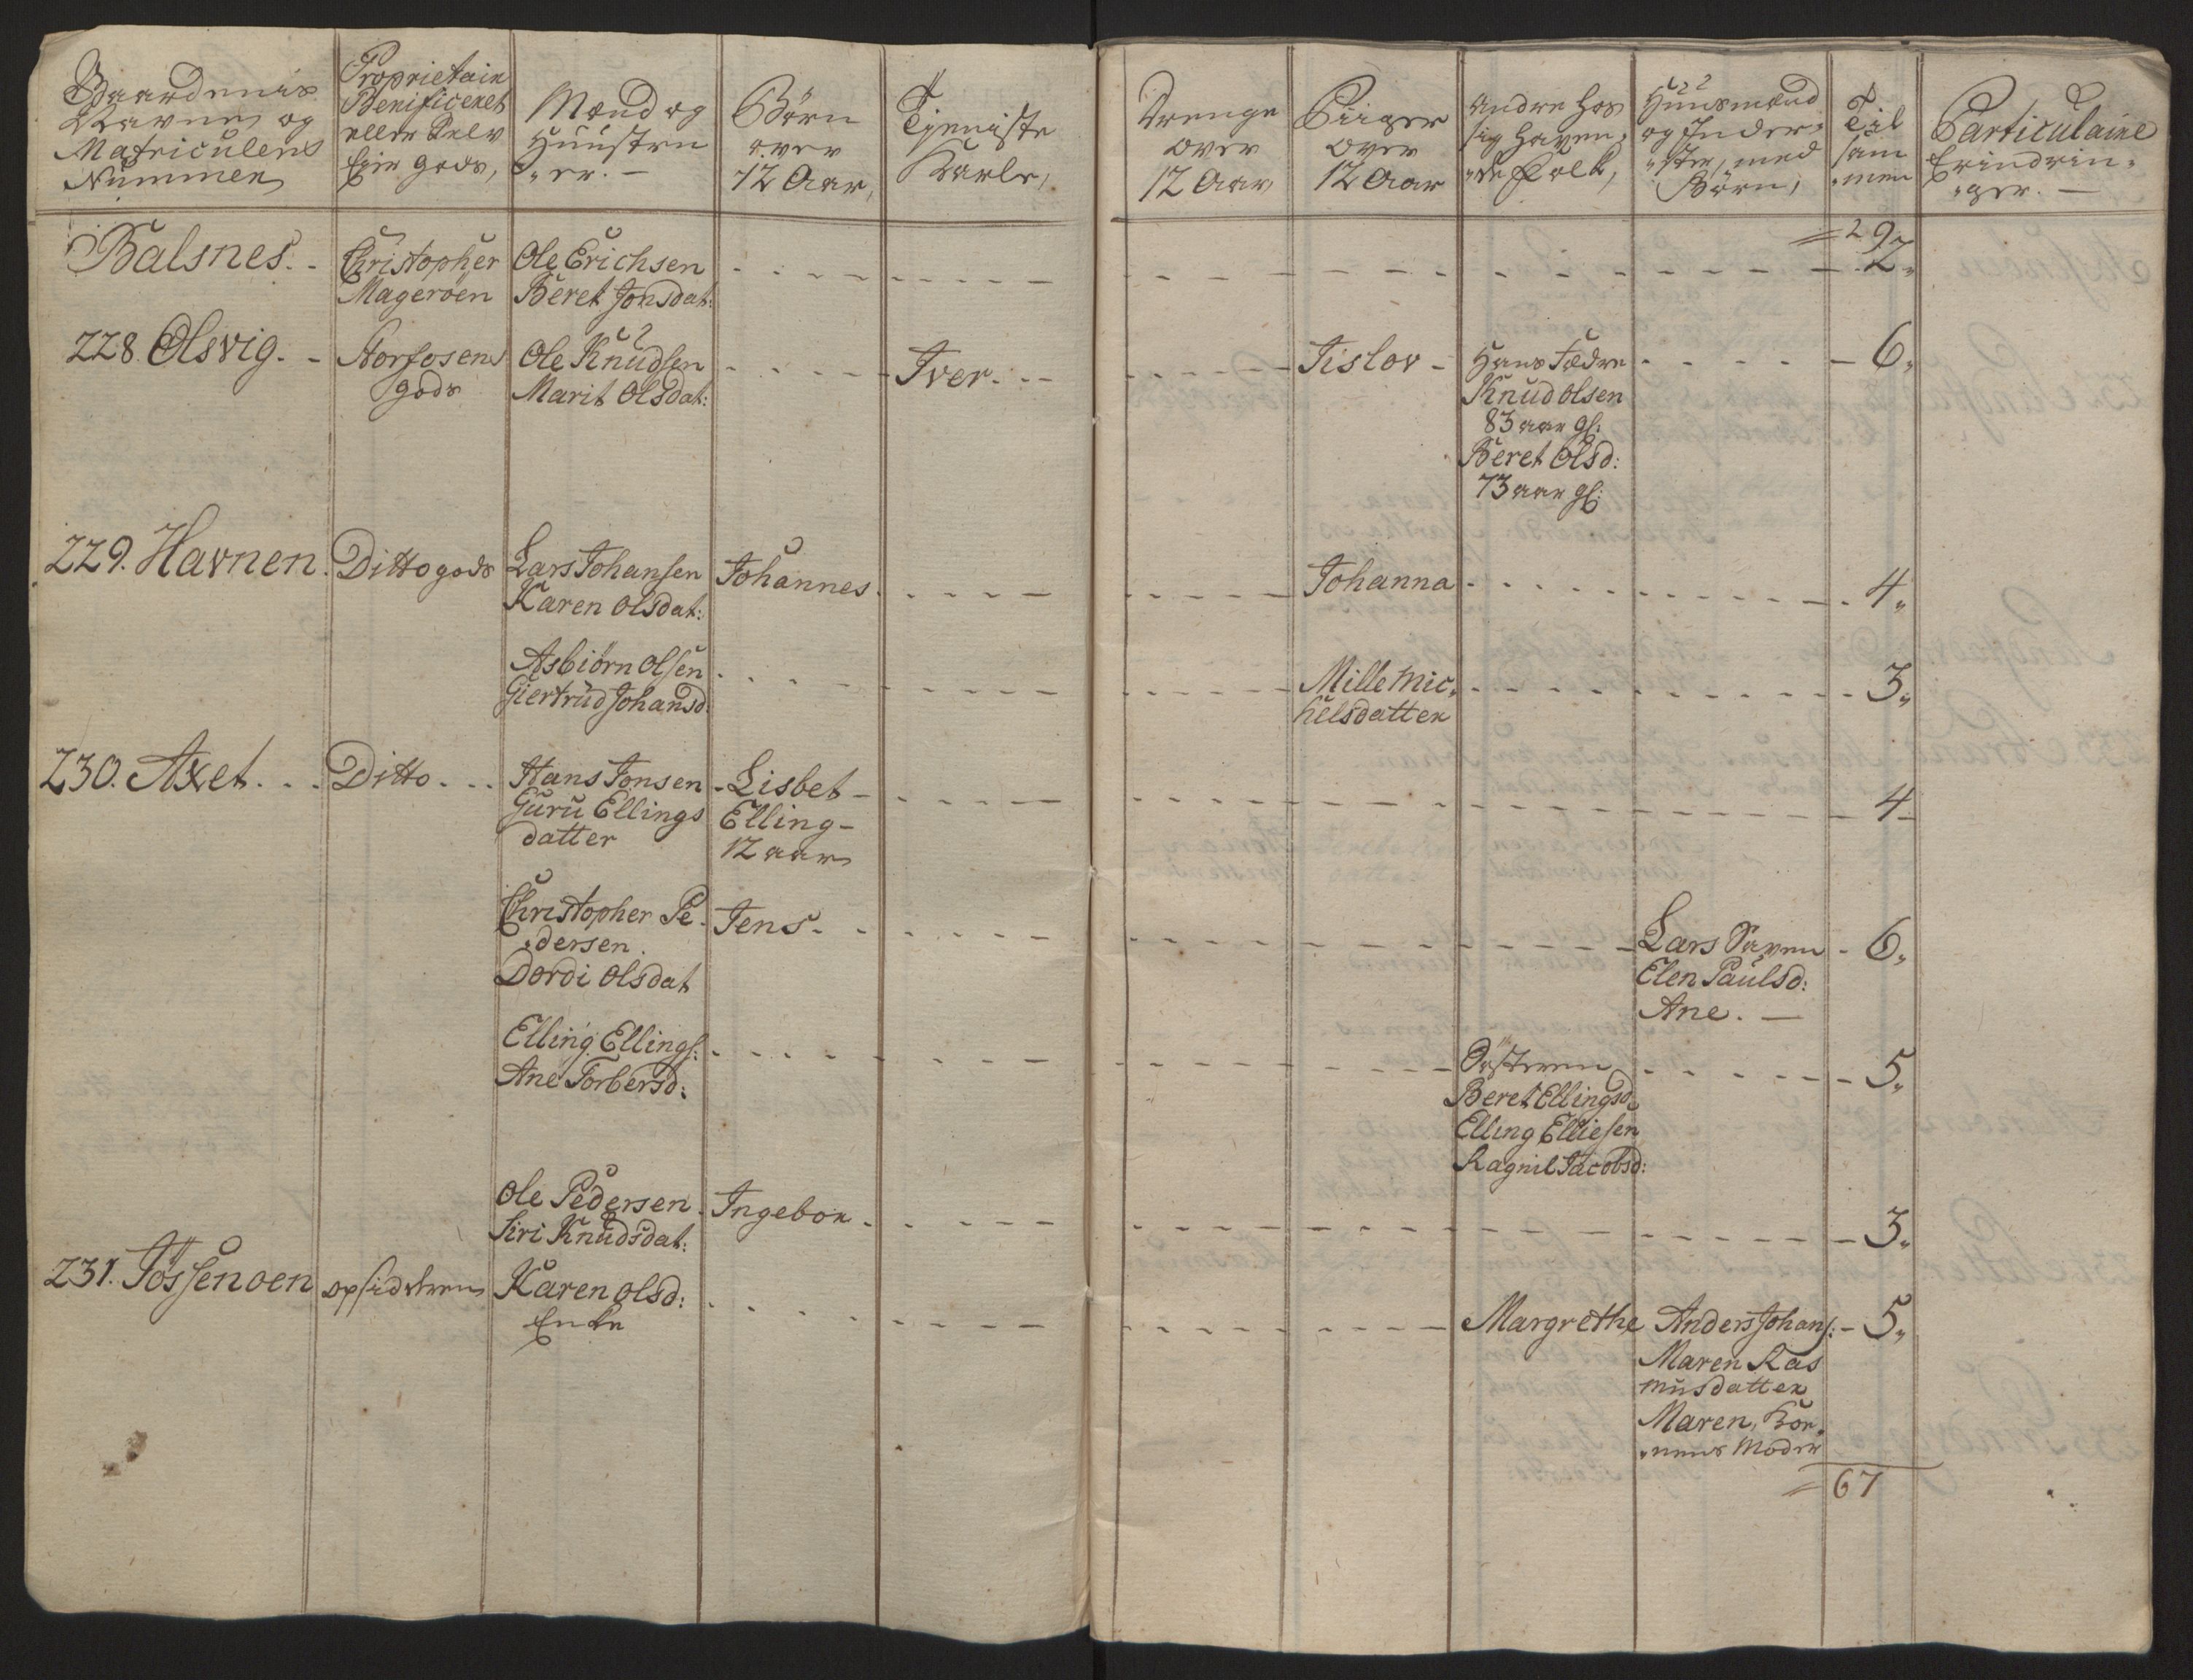 Gaardenis Navne og Matriculens Nummer
Proprietair Benificeret eller Selv Eier gods,
Mænd og Huustruer. —
Børn over 12 Aar,
Tjeniste Karle,
Drenge over 12 Aar,
Piiger over 12 Aar
Andre hos sig havende Folk,
Huusmænd og Inderster, med Børn,
Til sammen
Particulaire Erindringer. —
297
Balsnes. Christopher Ole Erichsen 2
Magerøen Beret Jonsdat:
228. Olsvig. Storfosens Ole Knudsen Iver. Sislov Hans Fædre 6
gods Marit Olsdat: Knud Olsen
83 aar gl:
Beret Olsd:
73 aar gl:
229. Havnen. Ditto gods Lars Johansen Johannes Johanna 4
Karen Olsdat:
Asbiørn Olsen Mille Mic- 3
Giertrud Johansd: helsdatter
230. Axet. Ditto. Hans Jonsen Lisbet 4
Guru Ellings Elling
datter 12 aar
Christopher Pe- Jens. Lars 6
dersen. Elen Paulsd:
Dordi Olsdat Ane.
Elling Ellings: 5
Ane Torbersd: Beret Ellingsd:
Elling Elliesen
Ragnil Jacobsd:
Ole Pedersen Ingebor 3
Siri Knudsdat:
231. Jøssenøen opsidderen Karen Olsd: Margrethe Anders Johans: 5
Enke Maren Ras
musdatter
Maren, Kor-
nens Moder
67